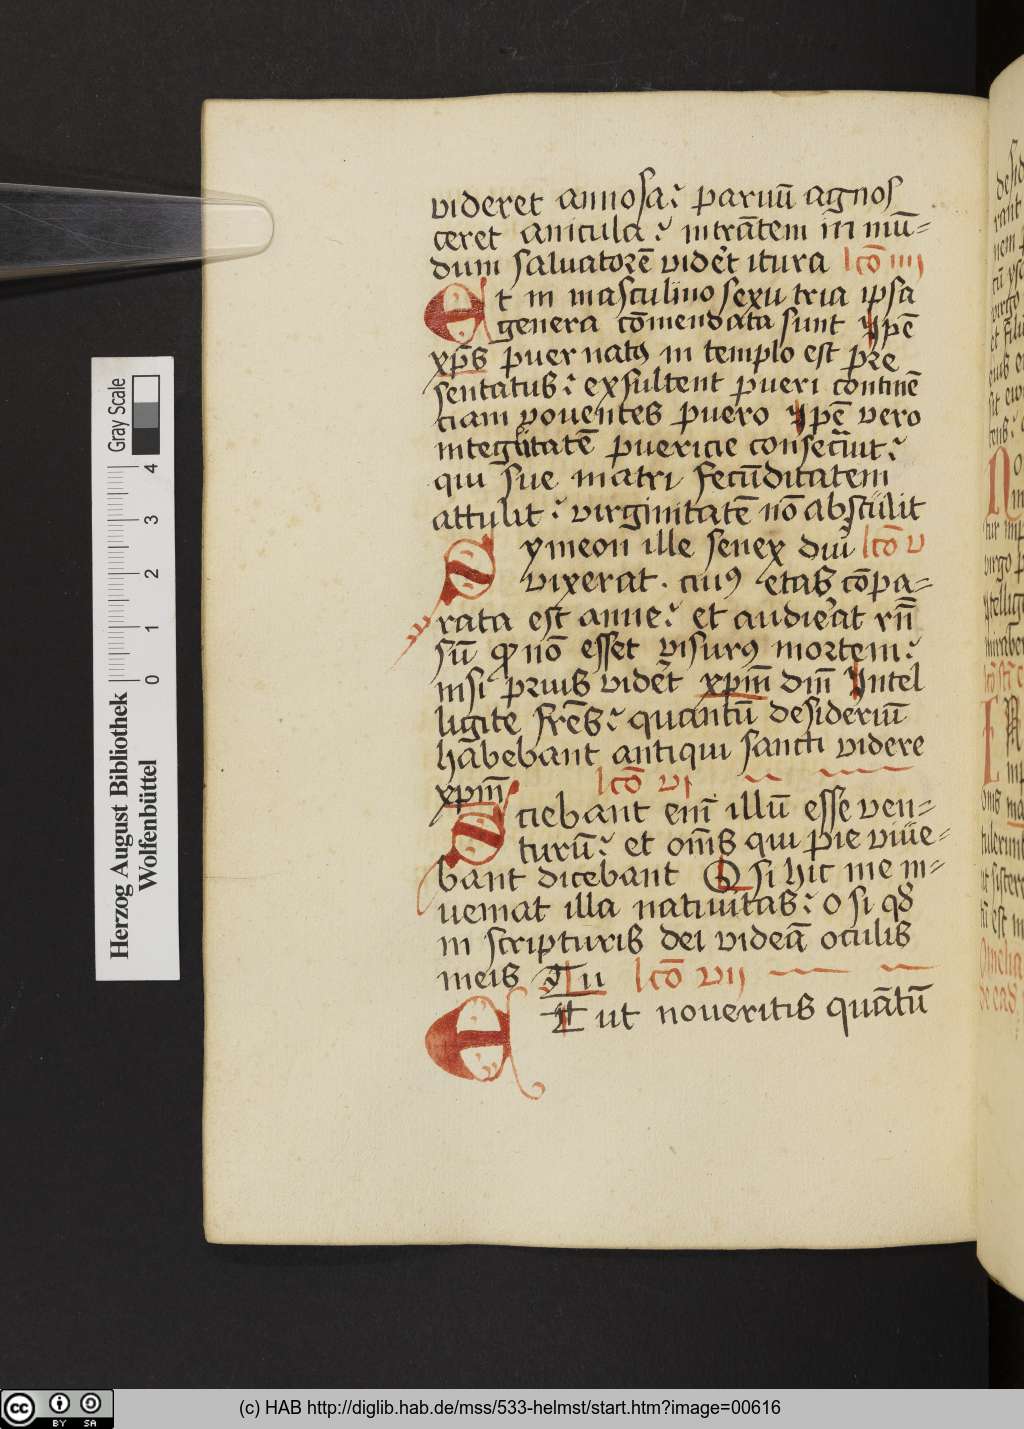 videret annosa. paruū agnos
ceret anicula. intrātem in mū=
dum saluatorē vidēt itura lcō iiij
Et in masculino sexu tria ipsa
genera cōmendata sunt ypē
xp̄s puer natꝯ in templo est pre
sentatus. exsultent pueri continē
ciam vouentes puero ypē vero
integritatē puericie consecuit.
qui sue matri fecūditatem
attulit. virginitatē nō abstulit
Symeon ille senex diu lcō v
vixerat. cuiꝯ etas cōpa=
rata est anne. et audierat rn̄
sū ꝙ nō esset visurꝯ mortem.
nisi prius vidēt xpm̄ dm̄ Intel
ligite frēs. quantū desideriū
habebant antiqui sancti videre
xpm̄ lcō vi
Sciebant eni illū esse ven=
turū. et om̄s qui pie viue=
bant dicebant O si hic me in=
ueniat illa natiuitas. o si qd
in scripturis dei videā oculis
meis Tu lcō vij
Et ut noueritis quātū
Herzog August Bibliothek
Wolfenbüttel
Gray Scale
0 1 2 3 4
cc BY SA
(c) HAB http://diglib.hab.de/mss/533-helmst/start.htm?image=00616